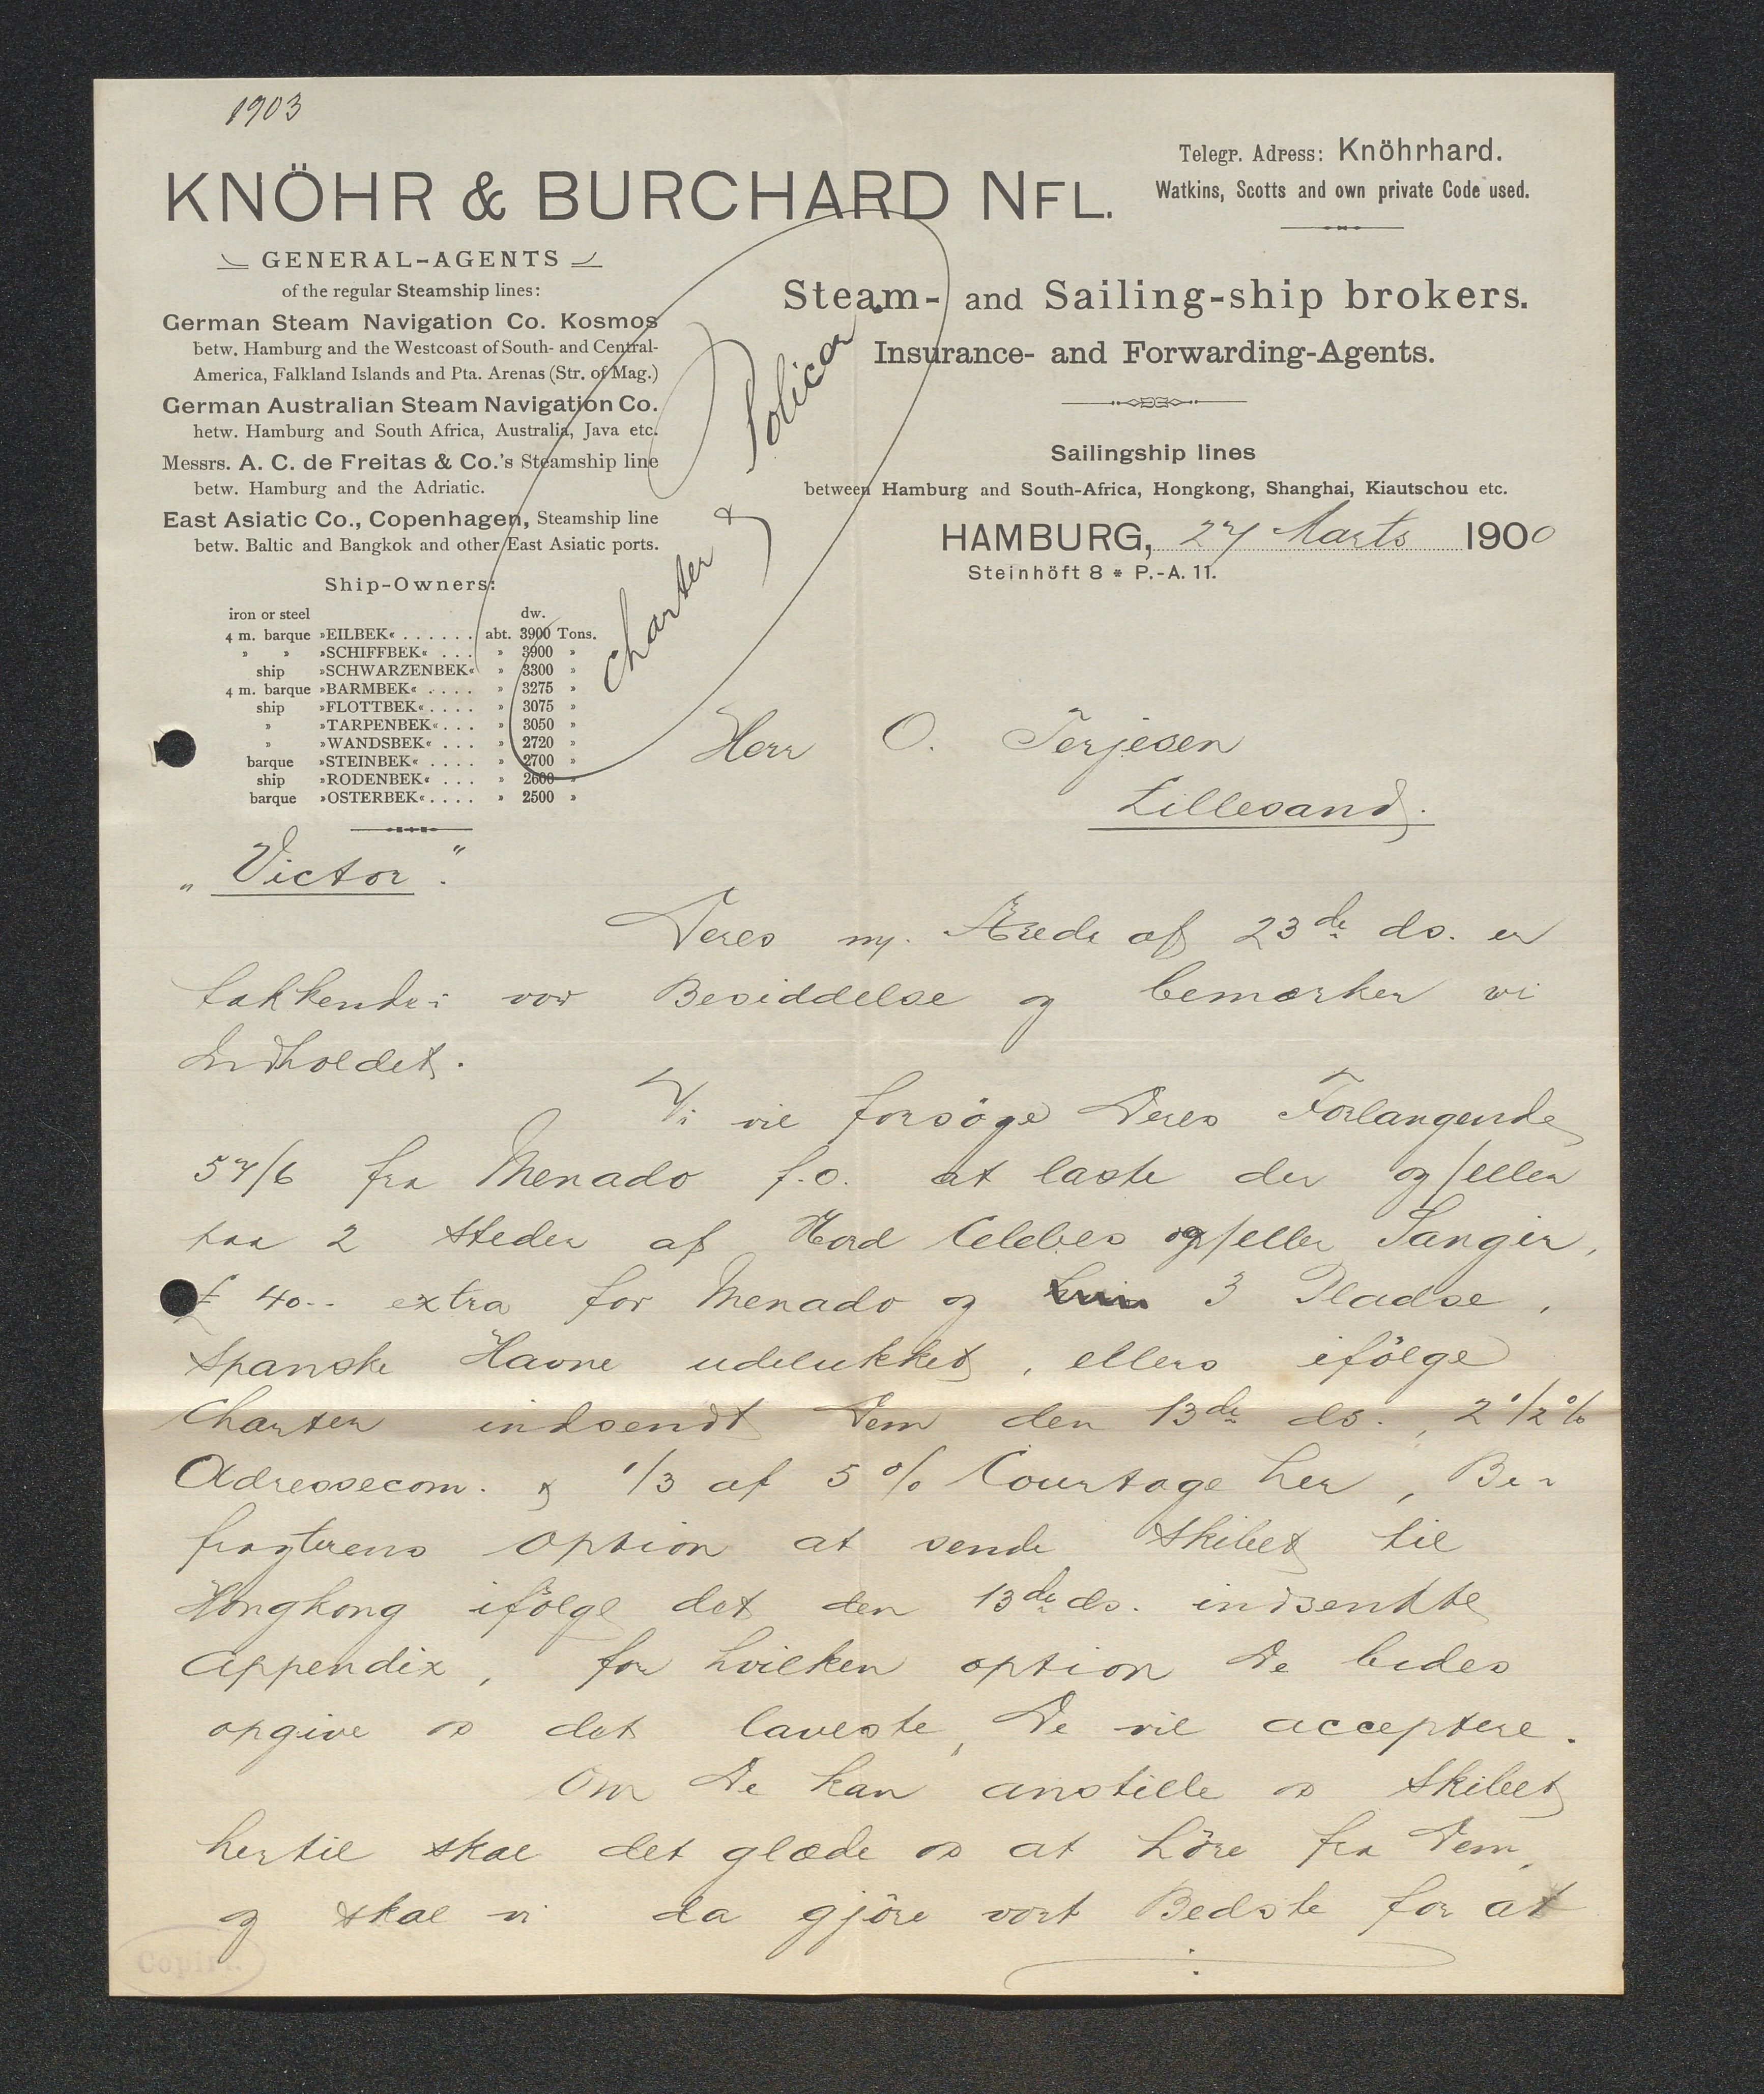 1903
KNÖHR & BURCHARD NFL.
Telegr. Adress: Knöhrhard.
Watkins, Scotts and own private Code used.
GENERAL-AGENTS
of the regular Steamship lines:
German Steam Navigation Co. Kosmos
betw. Hamburg and the Westcoast of South- and Central-
America, Falkland Islands and Pta. Arenas (Str. of Mag.)
German Australian Steam Navigation Co.
hetw. Hamburg and South Africa, Australia, Java etc.
Messrs. A. C. de Freitas & Co.'s Steamship line
betw. Hamburg and the Adriatic.
East Asiatic Co., Copenhagen, Steamship line
betw. Baltic and Bangkok and other East Asiatic ports.
Steam- and Sailing-ship brokers.
Insurance- and Forwarding-Agents.
Sailingship lines
between Hamburg and South-Africa, Hongkong, Shanghai, Kiautschou etc.
HAMBURG, 27 Marts 1900
Steinhöft 8 * P.-A. 11.
Charter &
Policer.
Ship-Owners:
iron or steel dw.
4 m. barque »EILBEK« . . . . . . abt. 3900 Tons.
» » »SCHIFFBEK« . . . » 3900 »
ship »SCHWARZENBEK« » 3300 »
4 m. barque »BARMBEK« . . . . » 3275 »
ship »FLOTTBEK« . . . . » 3075 »
» »TARPENBEK« . . . » 3050 »
» »WANDSBEK« . . . » 2720 »
barque »STEINBEK« . . . . » 2700 »
ship »RODENBEK« . . . » 2600 »
barque »OSTERBEK« . . . . » 2500 »
Herr O. Terjesen
Lillesand.
„Victor".
Deres ny. Ærede af 23de ds. er
takkende i vor Besiddelse og bemærker vi
Indholdet.
Vi vil forsöge Deres Forlangende
57/6 fra Menado f.o. at laste der og/eller
paa 2 Steder af Nord Celebes og/eller Sangir,
£ 40.- extra for Menado og 3 Pladse,
Spanske Havne udelukket, ellers ifölge
Charter indsendt Dem den 13de ds., 2 1/2 %
Adressecom. & 1/3 af 5 % Courtage her, Be-
fragterens option at sende Skibet til
Hongkong ifölge det den 13de ds. indsendte
Appendix, for hvilken option De bedes
opgive os det laveste, De vil acceptere.
Om De kan anstille os Skibet
hertil skal det glæde os at höre fra Dem,
og skal vi da gjöre vort Bedste for at
Copirt.